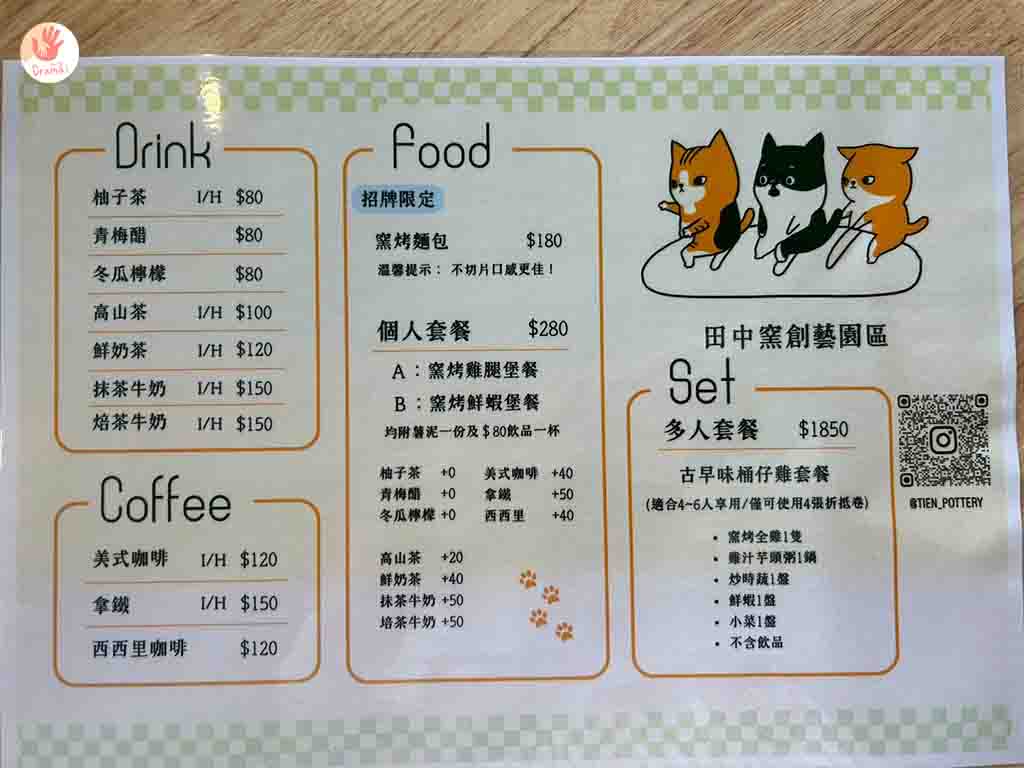 Drama
Drink
柚子茶 I/H $80
青梅醋 $80
冬瓜檸檬 $80
高山茶 I/H $100
鮮奶茶 I/H $120
抹茶牛奶 I/H $150
焙茶牛奶 I/H $150
Coffee
美式咖啡 I/H $120
拿鐵 I/H $150
西西里咖啡 $120
Food
招牌限定
窯烤麵包 $180
溫馨提示： 不切片口感更佳！
個人套餐 $280
A：窯烤雞腿堡餐
B：窯烤鮮蝦堡餐
均附薯泥一份及＄80飲品一杯
柚子茶 +0 美式咖啡 +40
青梅醋 +0 拿鐵 +50
冬瓜檸檬 +0 西西里 +40
高山茶 +20
鮮奶茶 +40
抹茶牛奶 +50
培茶牛奶 +50
田中窯創藝園區
Set
多人套餐 $1850
古早味桶仔雞套餐
(適合4~6人享用/僅可使用4張折抵卷)
• 窯烤全雞1隻
• 雞汁芋頭粥1鍋
• 炒時蔬1盤
• 鮮蝦1盤
• 小菜1盤
• 不含飲品
@TIEN_POTTERY